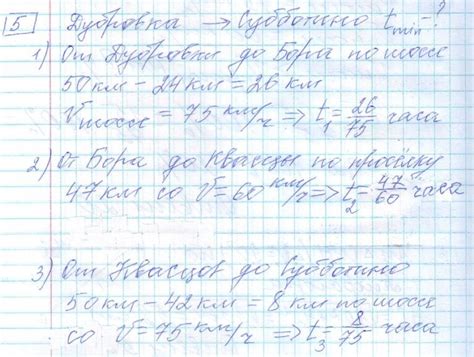 5 Дубровка → Субботино t min - ?
1) От Дубровки до Бора по шосс
50 км - 24 км = 26 км
Vшосс = 75 км/ч ⇒ t1 = 26/75 часа
2) От Бора до Квасцы по просёлку
47 км со V = 60 км/ч ⇒ t2 = 47/60 часа
3) От Квасцов до Субботино
50 км - 42 км = 8 км по шосс
со V = 75 км/ч ⇒ t3 = 8/75 часа